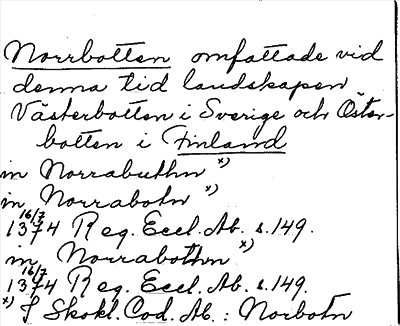 Norrbotten omfattade vid
denna tid landskapen
Västerbotten i Sverige och Öster-
botten i Finland
in Norrabuthn x)
in Norrabotn x)
16/7
1374 Reg. Eccl. Ab. s. 149.
in Norrabothn x)
16/7
1374 Reg. Eccl. Ab. s. 149.
x) I Skokl. Cod. Ab.: Norbotn